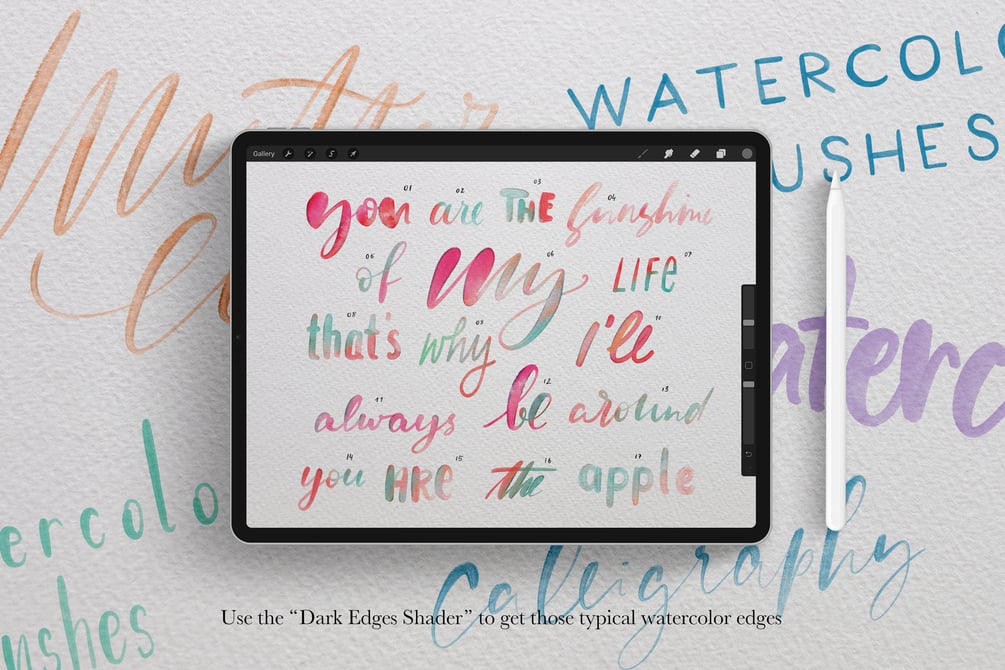 WATERCOL
USHES
Gallery
01 02 03 04
you are THE Sunshine
06 07
of my LIFE
08 09 10
that's why i'll
11 12 13
always be around
14 15 16 17
you ARE the apple
aterc
ercolo
ushes
Calligraphy
Use the “Dark Edges Shader” to get those typical watercolor edges